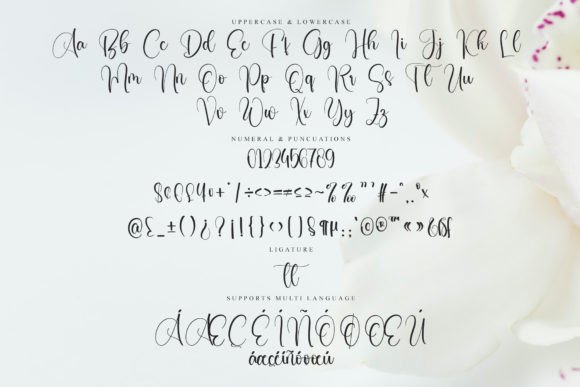 UPPERCASE & LOWERCASE
Aa Bb Cc Dd Ee Ff Gg Hh Ii Jj Kk Ll
Mm Nn Oo Pp Qq Rr Ss Tt Uu
Vv Ww Xx Yy Zz
NUMERAL & PUNCUATIONS
0123456789
+ ÷ < > = ≠ ≤ ≥ ~ % ‰ # -
@ _ ± ( ) ¿ ? ¡ ! { } ‹ › [ ] § ¶ © ® ™ « »
LIGATURE
tt
SUPPORTS MULTI LANGUAGE
ÁÆÇÉÍÑÓØŒÚ
áæçéíñóøœú